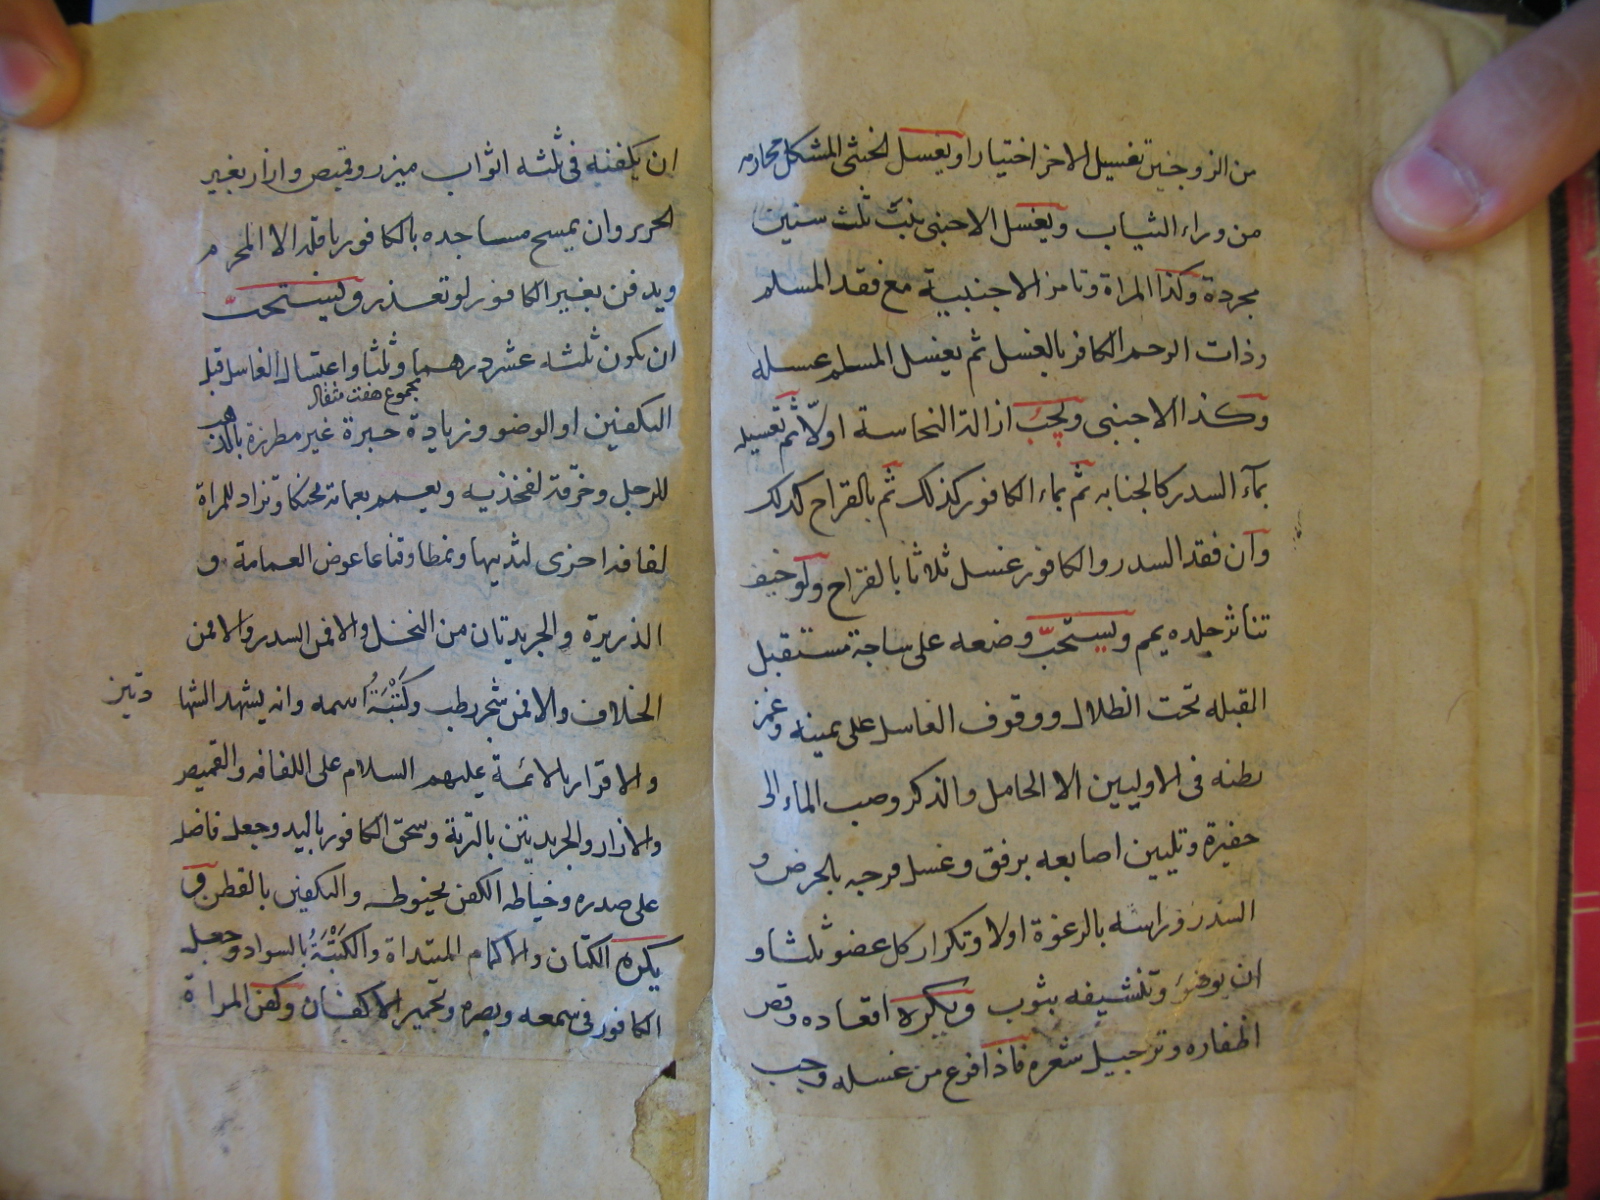 من الزوجين تغسيل الاخر اختيارا ويغسل الخنثى المشكل محارمه
من وراء الثياب ويغسل الاجنبى بنت ثلث سنين
مجردة وكذا المراة وتامر الاجنبية مع فقد المسلم
وذات الرحم الكافر بالغسل ثم يغسل المسلم غسله
وكذا الاجنبى ويجب ازالة النجاسة اولا ثم تغسيله
بماء السدر كالجنابه ثم بماء الكافور كذلك ثم بالقراح كذلك
وان فقد السدر والكافور غسل ثلاثا بالقراح ولو خيف
تناثر جلده يمم ويستحب وضعه على ساجة مستقبل
القبله تحت الظلال ووقوف الغاسل على يمينه وغمز
بطنه فى الاوليين الا الحامل والذكر وصب الماء الى
حفيرة وتليين اصابعه برفق وغسل فرجه بالحرض و
السدر وراسه بالرغوة اولا وتكرار كل عضو ثلثا و
ان يوضئ وتنشيفه بثوب ويكره اقعاده وقص
اظفاره وترجيل شعره فاذا فرغ من غسله وجب
ان يكفنه فى ثلثه اثواب ميزر وقميص وازار بغير
الحرير وان يمسح مساجده بالكافور باقله الا المحرم
ويدفن بغير الكافور لو تعذر ويستحب
ان يكون ثلثه عشر درهما وثلثا واغتسال الغاسل قبل
مجموع هفت مثقال
التكفين او الوضو وزيادة حبرة غير مطرزة بالذهب
للرجل وخرقة لفخذيه ويعمم بعمامة محنكا وتزاد للمراة
لفافه اخرى لثدييها ونمطا وقناعا عوض العمامة و
الذريرة والجريدتان من النخل والا فمن السدر والا فمن
الخلاف والا فمن شجر رطب وكَتْبَةُ اسمه وانه يشهد الشها
دتين
والاقرار بالائمة عليهم السلام على اللفافه والقميص
والازار والجريدتين بالتربة وسحق الكافور باليد وجعل فاضله
على صدره وخياطه الكفن بخيوطه والتكفين بالقطن و
يكره الكتان والاكمام المبتداة والكَتْبَةُ بالسواد وجعل
الكافور فى سمعه وبصره وتجمير الاكفان وكفن المراة